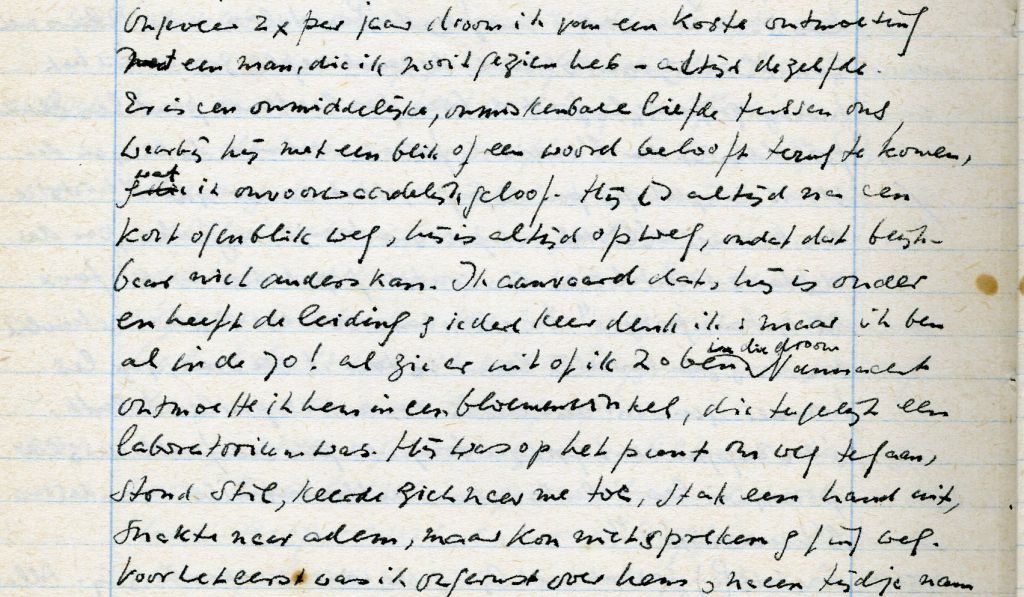 Ongeveer 2x per jaar droom ik van een korte ontmoeting
met een man, die ik nooit gezien heb – altijd dezelfde.
Er is een onmiddelijke, onmiskenbare liefde tussen ons,
waarbij hij met een blik of een woord belooft terug te komen,
wat ik onvoorwaardelijk geloof. Hij is altijd na een
kort ogenblik weg, hij is altijd op weg, omdat dat blijk-
baar niet anders kan. Ik aanvaard dat, hij is ouder
en heeft de leiding & iedere keer denk ik: maar ik ben
al in de 70! al zie er uit of ik 20 ben in die droom Vannacht
ontmoette ik hem in een bloemenwinkel, die tegelijk een
laboratorium was. Hij was op het punt om weg te gaan,
stond stil, keerde zich naar me toe, stak een hand uit,
snakte naar adem, maar kon niet spreken & ging weg.
Voor het eerst was ik ongerust over hem, na een tijdje nam